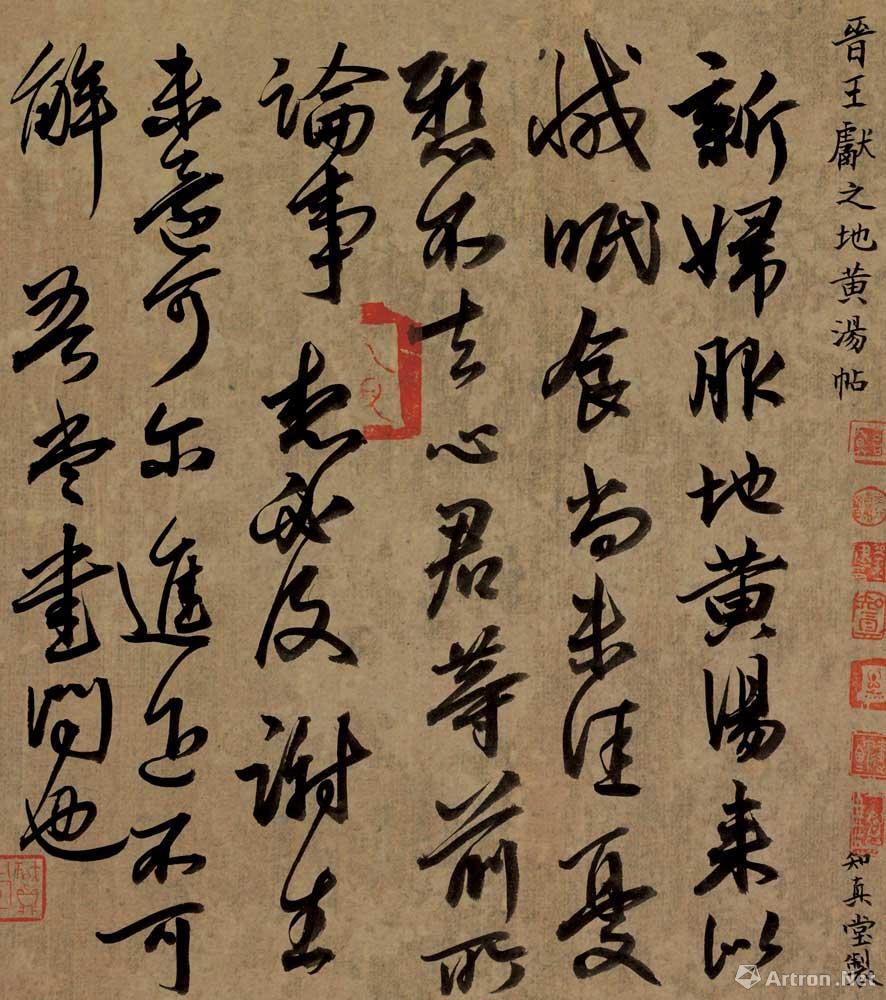 晉王獻之地黄湯帖
知真堂製
新婦服地黄湯来似
減眠食尚未佳憂
懸不去心君等前所
論事想必及謝生
未還可尔進退不可
解吾當書問也
Artron.Net